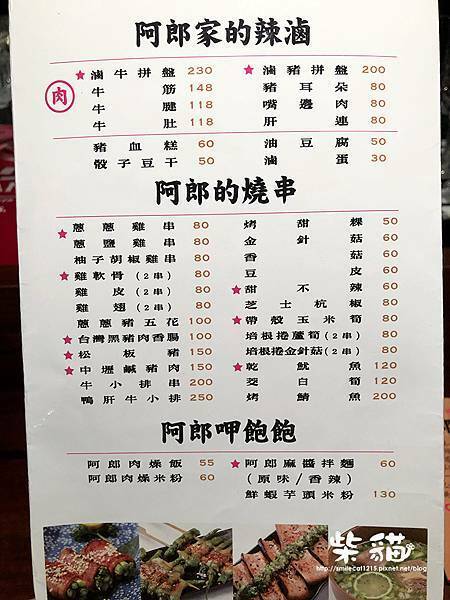 阿郎家的辣滷
肉
★滷牛拼盤 230
牛筋 148
牛腱 118
牛肚 118
★滷豬拼盤 200
豬耳朵 80
嘴邊肉 80
肝連 80
豬血糕 60
骰子豆干 50
油豆腐 50
滷蛋 30
阿郎的燒串
★蔥蔥雞串 80
蔥鹽雞串 80
柚子胡椒雞串 80
★雞軟骨(2串) 80
雞皮(2串) 80
雞翅(2串) 80
蔥蔥豬五花 100
★台灣黑豬肉香腸 100
★松板豬 150
★中壢鹹豬肉 150
牛小排串 200
鴨肝牛小排 250
烤甜粿 50
金針菇 60
香菇 60
豆皮 60
★甜不辣 60
芝士杭椒 80
★帶殼玉米筍 80
培根捲蘆筍(2串) 80
培根捲金針菇(2串) 80
★乾魷魚 120
茭白筍 120
烤鯖魚 200
阿郎呷飽飽
阿郎肉燥飯 55
阿郎肉燥米粉 60
★阿郎麻醬拌麵 60
(原味/香辣)
鮮蝦芋頭米粉 130
柴貓
http://smilecat1215.pixnet.net/blog